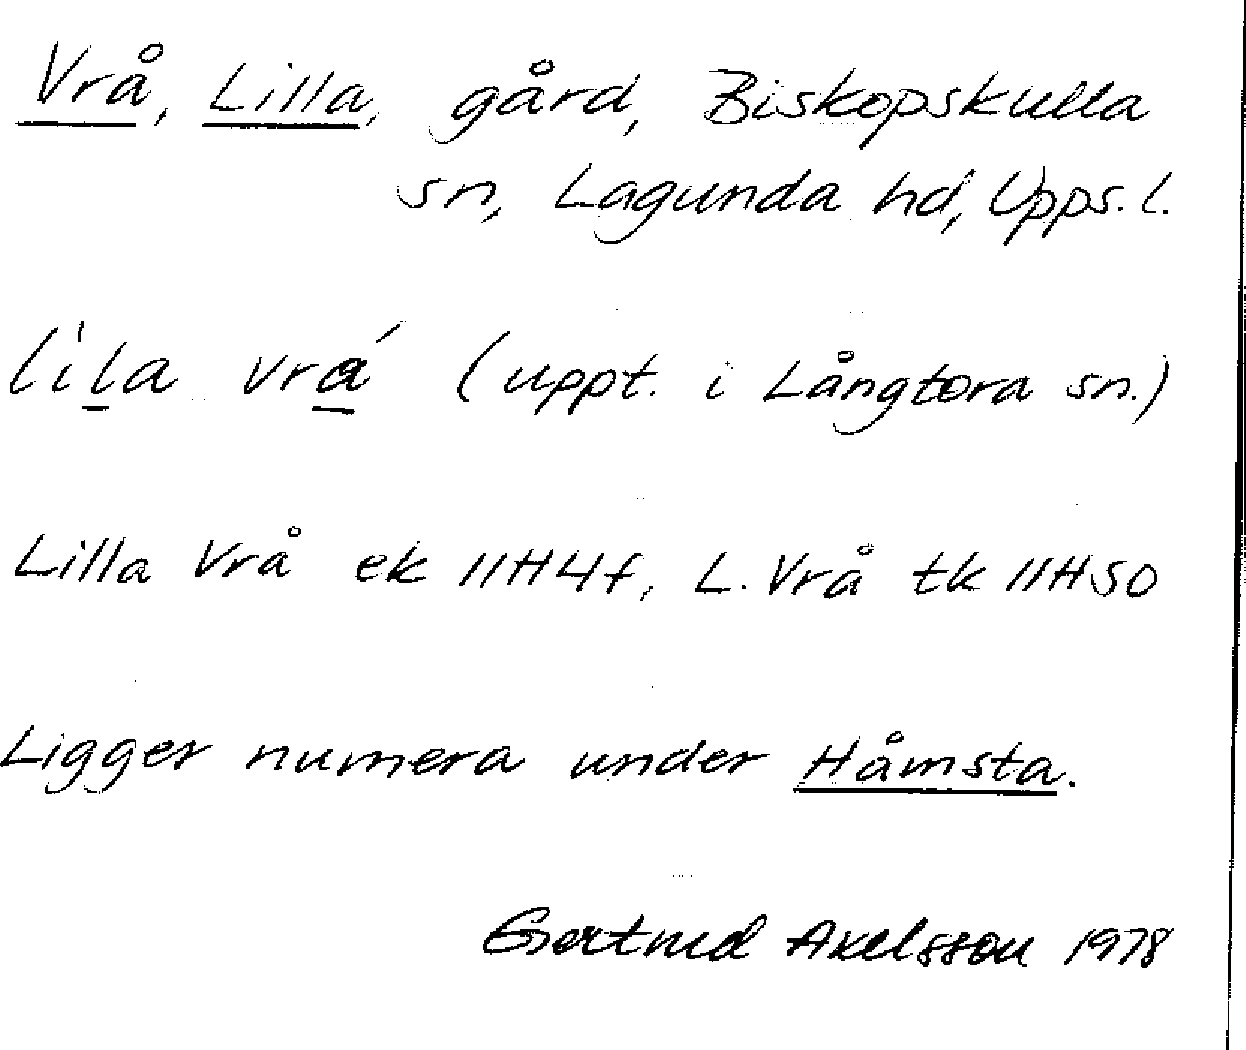 Vrå, Lilla, gård, Biskopskulla
sn, Lagunda hd, Upps. l.
lìl̲a vrá̲ (uppt. i Långtora sn.)
Lilla Vrå ek 11H4f, L. Vrå tk 11HSO
Ligger numera under Håmsta.
Gertrud Axelsson 1978